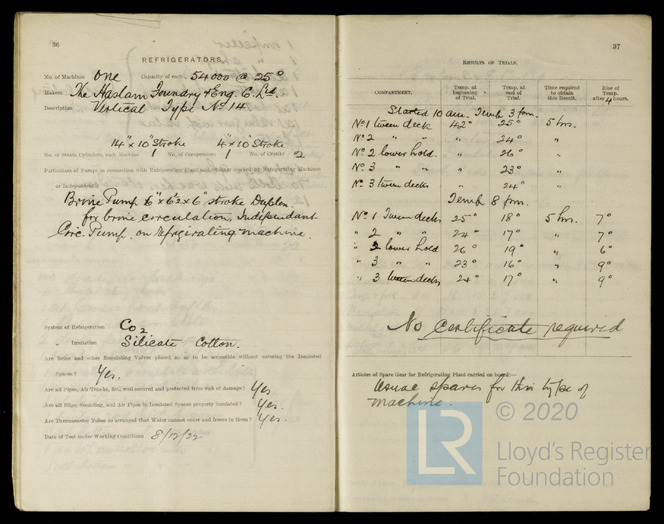 36
REFRIGERATORS.
No. of Machines one Capacity of each 54000 @ 25°
Makers The Haslam Foundry & Eng. C. Ltd.
Description Vertical Type No 14.
14" x 10" Stroke 4" x 10" Stroke
No. of Steam Cylinders, each Machine 1 No. of Compressors 1 No. of Cranks 2
Particulars of Pumps in connection with Refrigerating Plant and whether worked by Refrigerating Machines
or Independently
Brine Pump 6" x 6½ x 6" stroke Duplex
for brine circulation, Independant
Circ. Pump on refrigirating machine.
System of Refrigeration CO2
" Insulation Silicate Cotton.
Are Brine and other Regulating Valves placed so as to be accessible without entering the Insulated
Spaces? Yes.
Are all Pipes, Air Trunks, &c., well secured and protected from risk of damage? Yes
Are all Bilge, Sounding, and Air Pipes in Insulated Spaces properly insulated? Yes.
Are Thermometer Tubes so arranged that Water cannot enter and freeze in them? Yes.
Date of Test under Working Conditions 8/12/22
37
RESULTS OF TRIALS.
COMPARTMENT. Temp. at beginning of Trial. Temp. at end of Trial. Time required to obtain this Result. Rise of Temp. after 4 hours.
Started 10 am. Temp 3 pm.
No 1 tween deck 42° 25° 5 hrs.
No 2 " " 24° "
No 2 lower hold. " 26° "
No 3 " " 23° "
No 3 tween decks " 24° "
Temp 8 pm.
No 1 Tween decks. 25° 18° 5 hrs. 7°
" 2 " " 24° 17° " 7°
" 2 lower hold 26° 19° " 6°
" 3 " " 23° 16° " 9°
" 3 tween decks 24° 17° " 9°
No certificate required
Articles of Spare Gear for Refrigerating Plant carried on board:—
Usual spares for this type of
machine.
© 2020
LR
Lloyd's Register
Foundation